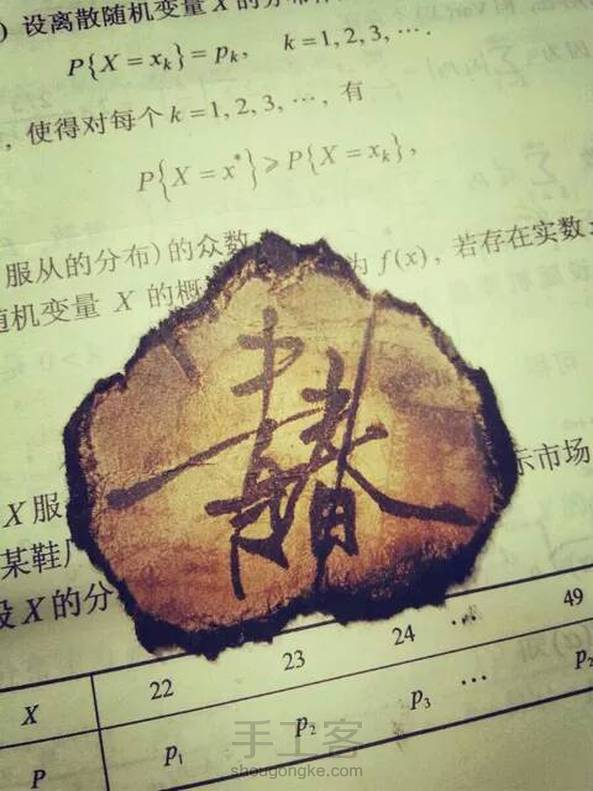 ) 设离散随机变量 X 的分布
P{X = xₖ} = pₖ, k = 1, 2, 3, ⋯.
, 使得对每个 k = 1, 2, 3, ⋯, 有
P{X = x*} ≥ P{X = xₖ},
服从的分布) 的众数
随机变量 X 的概 为 f(x), 若存在实数
青春
X 服 示市场
某鞋厂
设 X 的分
X 22 23 24 ⋯ 49
P p₁ p₂ p₃ ⋯ p₂
手工客
shougongke.com